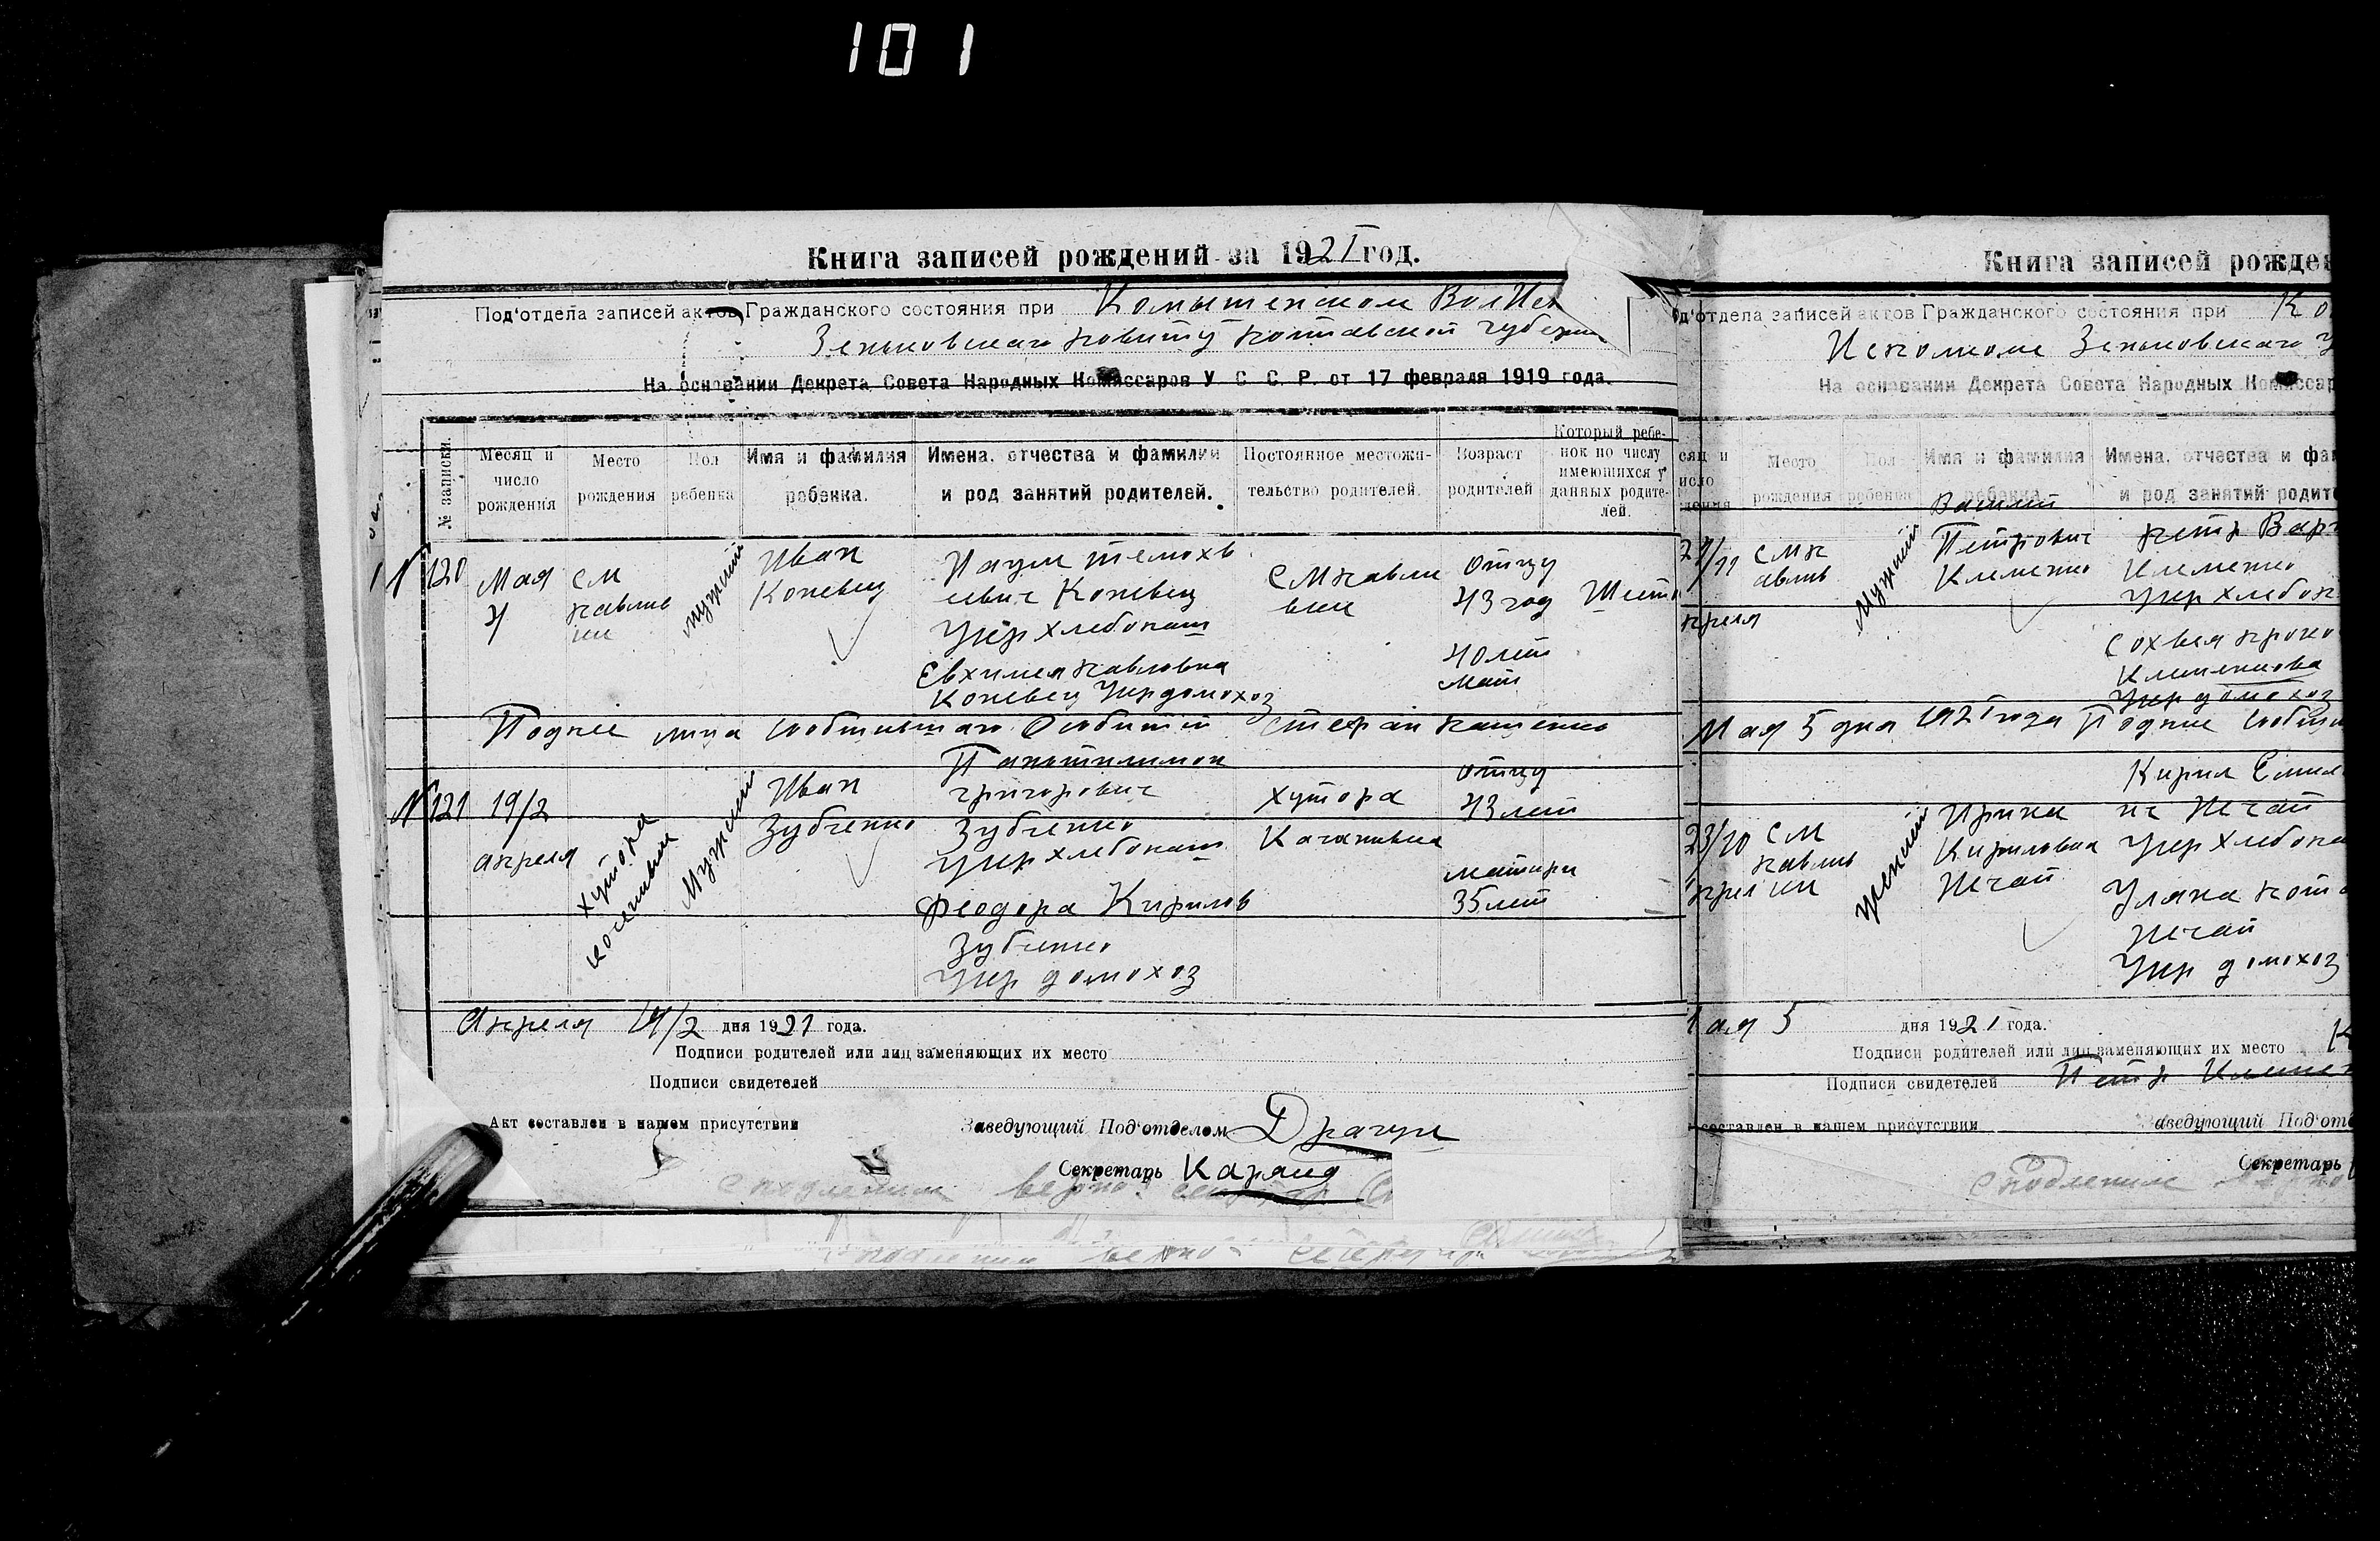 101
Книга записей рождений за 1921 год.
Под'отдела записей актов Гражданского состояния при Комышенском ВолИс
Зеньковского повиту Полтавской губернии
На основании Декрета Совета Народных Комиссаров У С С. Р. от 17 февраля 1919 года.
№ записки.
Месяц и число рождения
Место рождения
Пол ребенка
Имя и фамилия ребенка.
Имена, отчества и фамилии и род занятий родителей.
Постоянное местожительство родителей.
Возраст родителей
Который ребенок по числу имеющихся у данных родителей.
№ 120
Мая
см
павлив
ки
мужский
Иван
Коневец
Наум
евич Коневец
укр хлебопаш
Евхимия павловна
Коневец Укр домохоз
с М павли
вки
отцу
43 год
40 лет
мат
Шест
Подпис лица сообщившаго о событии Стефан
№ 121
19/2
апреля
хутора
Мужский
Иван
Зубченко
Пантилимон
григорович
Зубченко
укр хлебопаш
Феодора Кирилов
Зубченко
укр домохоз
хутора
отцу
43 лет
матири
35 лет
Апреля 19/2 дня 1921 года.
Подписи родителей или лиц заменяющих их место
Подписи свидетелей
Акт составлен в нашем присутствии
Заведующий Под'отделом
Секретарь
С подлеником верно
Книга записей рожде
од'отдела записей актов Гражданского состояния при Ко
Исполкоме Зеньковского У
На основании Декрета Совета Народных Комиссар
сяц и
исло
дения
Место рождения
Пол ребенка
Имя и фамилия ребенка.
Имена, отчества и фам
и род занятий родите
см п
авлив
Мужский
Василий
Петрович
Клименко
петр Вар
Клименко
укр хлебоп
Сохвия проко
Клименкова
Укр домохоз
преля
Мая 5 дня 1921 года Подпис сообщи
23/10
прел
см
павлив
ки
женский
Ирина
Кириловна
Нечай
Кирил Емил
ич Нечай
Укр хлебопа
Уляна пот
Нечай
Укр домохоз
мая 5 дня 1921 года.
Подписи родителей или лиц заменяющих их место К
Подписи свидетелей Петр Климен
составлен в нашем присутствии
Заведующий Под'отд
Секретарь
С подлеником верно